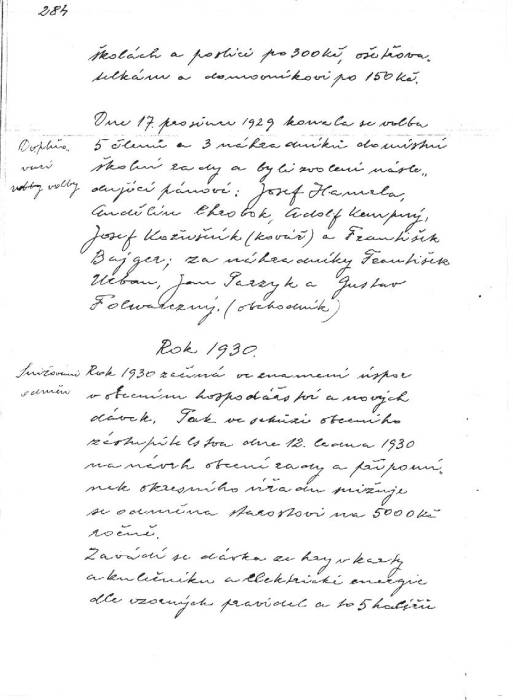 284
školách a poslici po 300 Kč, ošetřova-
telkám a domovníkovi po 150 Kč.
Dne 17. prosince 1929 konala se volba
Doplňo-
vací
volby volby
5 členů a 3 náhradníků do místní
školní rady a byli zvoleni násle-
dující pánové: Josef Hamrla,
Andělín Chrobok, Adolf Kempný,
Josef Kožušník (kovář) a František
Bajger; za náhradníky František
Urban, Jan Parzyk a Gustav
Folwarczný. (obchodník)
Rok 1930.
Snižování
odměn
Rok 1930 začíná ve znamení úspor
v obecním hospodářství a nových
dávek. Tak ve schůzi obecního
zastupitelstva dne 12. ledna 1930
na návrh obecní rady a připomí-
nek okresního úřadu snižuje
se odměna starostovi na 5000 Kč
ročně.
Zavádí se dávka ze hry v karty
a kulečníku a elektrické energie
dle vzorných pravidel a to 5 haléřů